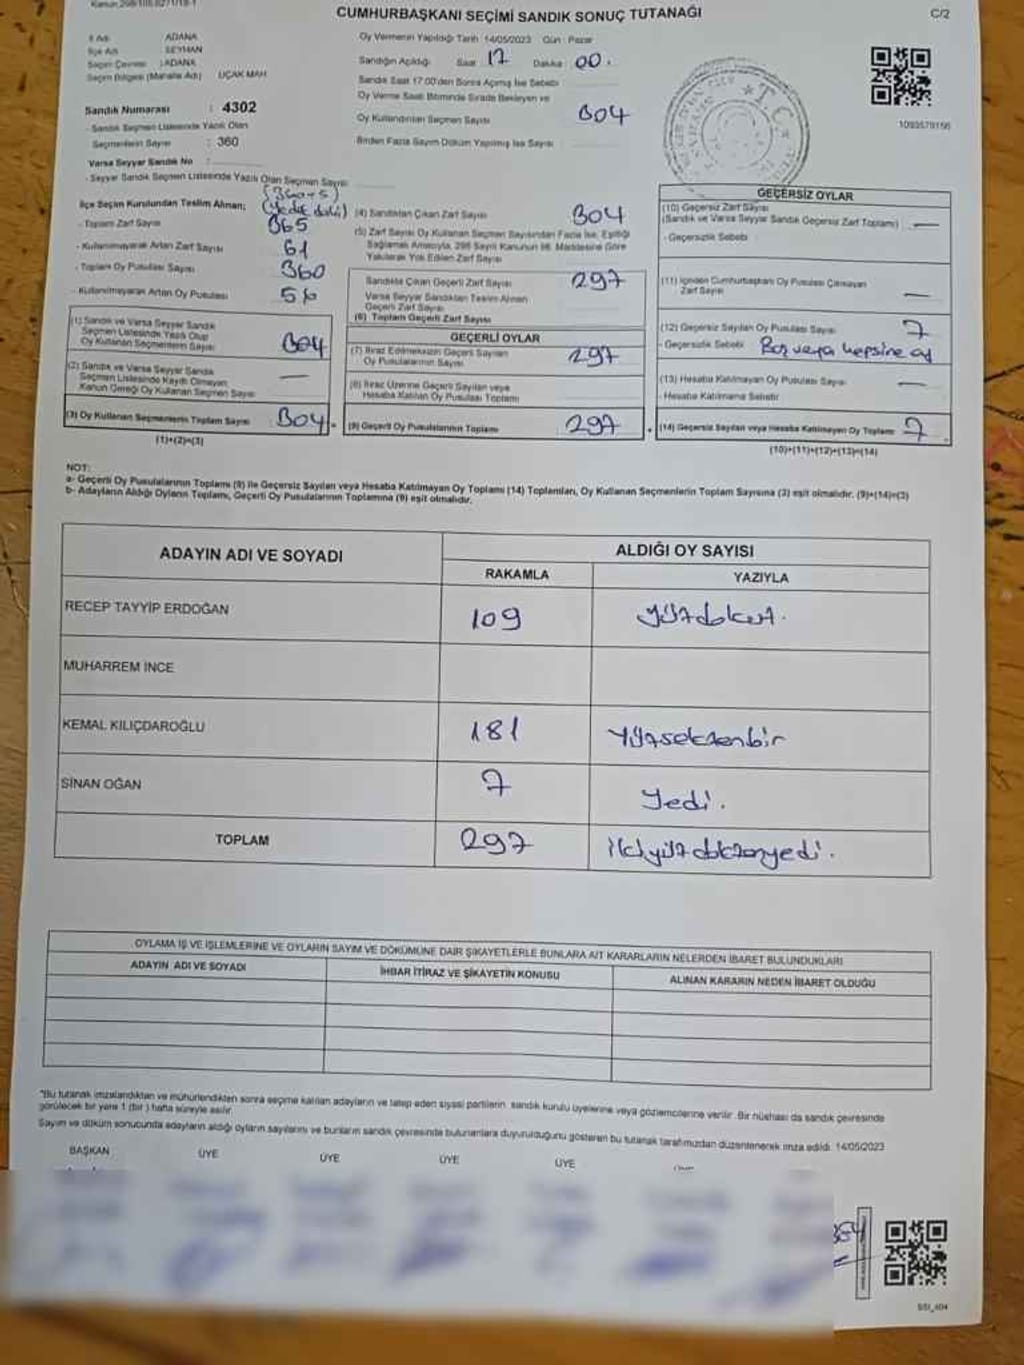 CUMHURBAŞKANI SEÇİMİ SANDIK SONUÇ TUTANAĞI
C/2
İl Adı ADANA
İlçe Adı SEYHAN
Seçim Çevresi : ADANA
Seçim Bölgesi (Mahalle Adı) UÇAK MAH
Sandık Numarası : 4302
- Sandık Seçmen Listesinde Yazılı Olan
Seçmenlerin Sayısı : 360
Varsa Seyyar Sandık No :
- Seyyar Sandık Seçmen Listesinde Yazılı Olan Seçmen Sayısı
Oy Vermenin Yapıldığı Tarih 14/05/2023 Gün : Pazar
Sandığın Açıldığı Saat 17 Dakika 00.
Sandık Saat 17:00'den Sonra Açılmış İse Sebebi
Oy Verme Saati Bitiminde Sırada Bekleyen ve
Oy Kullandırılan Seçmen Sayısı 304
Birden Fazla Sayım Döküm Yapılmış İse Sayısı
1093579156
İlçe Seçim Kurulundan Teslim Alınan; (360+5)
- Toplam Zarf Sayısı 365
- Kullanılmayarak Artan Zarf Sayısı 61
- Toplam Oy Pusulası Sayısı 360
- Kullanılmayarak Artan Oy Pusulası 56
(1) Sandık ve Varsa Seyyar Sandık
Seçmen Listesinde Yazılı Olup
Oy Kullanan Seçmenlerin Sayısı 304
(2) Sandık ve Varsa Seyyar Sandık
Seçmen Listesinde Kayıtlı Olmayan,
Kanun Gereği Oy Kullanan Seçmen Sayısı —
(3) Oy Kullanan Seçmenlerin Toplam Sayısı 304
(1)+(2)=(3)
(4) Sandıktan Çıkan Zarf Sayısı 304
(5) Zarf Sayısı Oy Kullanan Seçmen Sayısından Fazla İse, Eşitliği
Sağlamak Amacıyla, 298 Sayılı Kanunun 98. Maddesine Göre
Yakılarak Yok Edilen Zarf Sayısı
Sandıkta Çıkan Geçerli Zarf Sayısı 297
Varsa Seyyar Sandıktan Teslim Alınan
Geçerli Zarf Sayısı
(6) Toplam Geçerli Zarf Sayısı
GEÇERLİ OYLAR
(7) İtiraz Edilmeksizin Geçerli Sayılan
Oy Pusulalarının Sayısı 297
(8) İtiraz Üzerine Geçerli Sayılan veya
Hesaba Katılan Oy Pusulası Toplamı
(9) Geçerli Oy Pusulalarının Toplamı 297
GEÇERSİZ OYLAR
(10) Geçersiz Zarf Sayısı
(Sandık ve Varsa Seyyar Sandık Geçersiz Zarf Toplamı) —
- Geçersizlik Sebebi
(11) İçinden Cumhurbaşkanı Oy Pusulası Çıkmayan
Zarf Sayısı —
(12) Geçersiz Sayılan Oy Pusulası Sayısı 7
- Geçersizlik Sebebi Boş veya hepsine ad
(13) Hesaba Katılmayan Oy Pusulası Sayısı —
- Hesaba Katılmama Sebebi
(14) Geçersiz Sayılan veya Hesaba Katılmayan Oy Toplamı 7
(10)+(11)+(12)+(13)=(14)
NOT:
a- Geçerli Oy Pusulalarının Toplamı (9) ile Geçersiz Sayılan veya Hesaba Katılmayan Oy Toplamı (14) Toplamları, Oy Kullanan Seçmenlerin Toplam Sayısına (3) eşit olmalıdır. (9)+(14)=(3)
b- Adayların Aldığı Oyların Toplamı, Geçerli Oy Pusulalarının Toplamına (9) eşit olmalıdır.
ADAYIN ADI VE SOYADI ALDIĞI OY SAYISI
RAKAMLA YAZIYLA
RECEP TAYYİP ERDOĞAN 109 Yüzdokuz.
MUHARREM İNCE
KEMAL KILIÇDAROĞLU 181 Yüzseksenbir
SİNAN OĞAN 7 Yedi.
TOPLAM 297 ikiyüzdoksanyedi.
OYLAMA İŞ VE İŞLEMLERİNE VE OYLARIN SAYIM VE DÖKÜMÜNE DAİR ŞİKAYETLERLE BUNLARA AİT KARARLARIN NELERDEN İBARET BULUNDUKLARI
ADAYIN ADI VE SOYADI İHBAR İTİRAZ VE ŞİKAYETİN KONUSU ALINAN KARARIN NEDEN İBARET OLDUĞU
*Bu tutanak imzalandıktan ve mühürlendikten sonra seçime katılan adayların ve talep eden siyasi partilerin, sandık kurulu üyelerine veya gözlemcilerine verilir. Bir nüshası da sandık çevresinde
görülecek bir yere 1 (bir) hafta süreyle asılır.
Sayım ve döküm sonucunda adayların aldığı oyların sayılarını ve bunların sandık çevresinde bulunanlara duyurulduğunu gösteren bu tutanak tarafımızdan düzenlenerek imza edildi. 14/05/2023
BAŞKAN ÜYE ÜYE ÜYE ÜYE